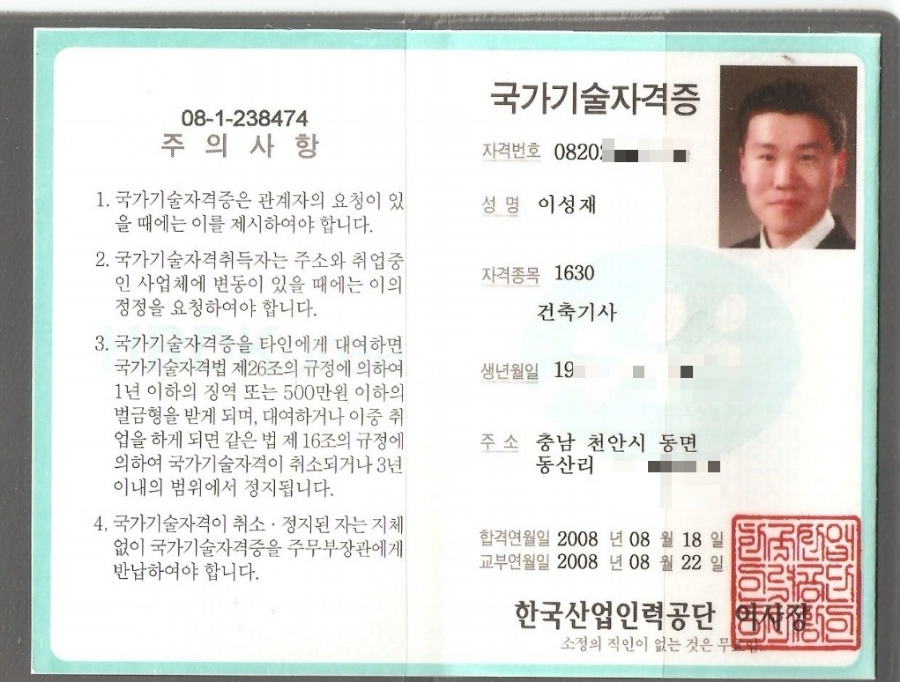 08-1-238474
주 의 사 항
1. 국가기술자격증은 관계자의 요청이 있
을 때에는 이를 제시하여야 합니다.
2. 국가기술자격취득자는 주소와 취업중
인 사업체에 변동이 있을 때에는 이의
정정을 요청하여야 합니다.
3. 국가기술자격증을 타인에게 대여하면
국가기술자격법 제26조의 규정에 의하여
1년 이하의 징역 또는 500만원 이하의
벌금형을 받게 되며, 대여하거나 이중 취
업을 하게 되면 같은 법 제16조의 규정에
의하여 국가기술자격이 취소되거나 3년
이내의 범위에서 정지됩니다.
4. 국가기술자격이 취소·정지된 자는 지체
없이 국가기술자격증을 주무부장관에게
반납하여야 합니다.
국가기술자격증
자격번호 0820
성 명 이성재
자격종목 1630
건축기사
생년월일 19
주 소 충남 천안시 동면
동산리
합격연월일 2008 년 08 월 18 일
교부연월일 2008 년 08 월 22 일
한국산업인력공단 이사장
소정의 직인이 없는 것은